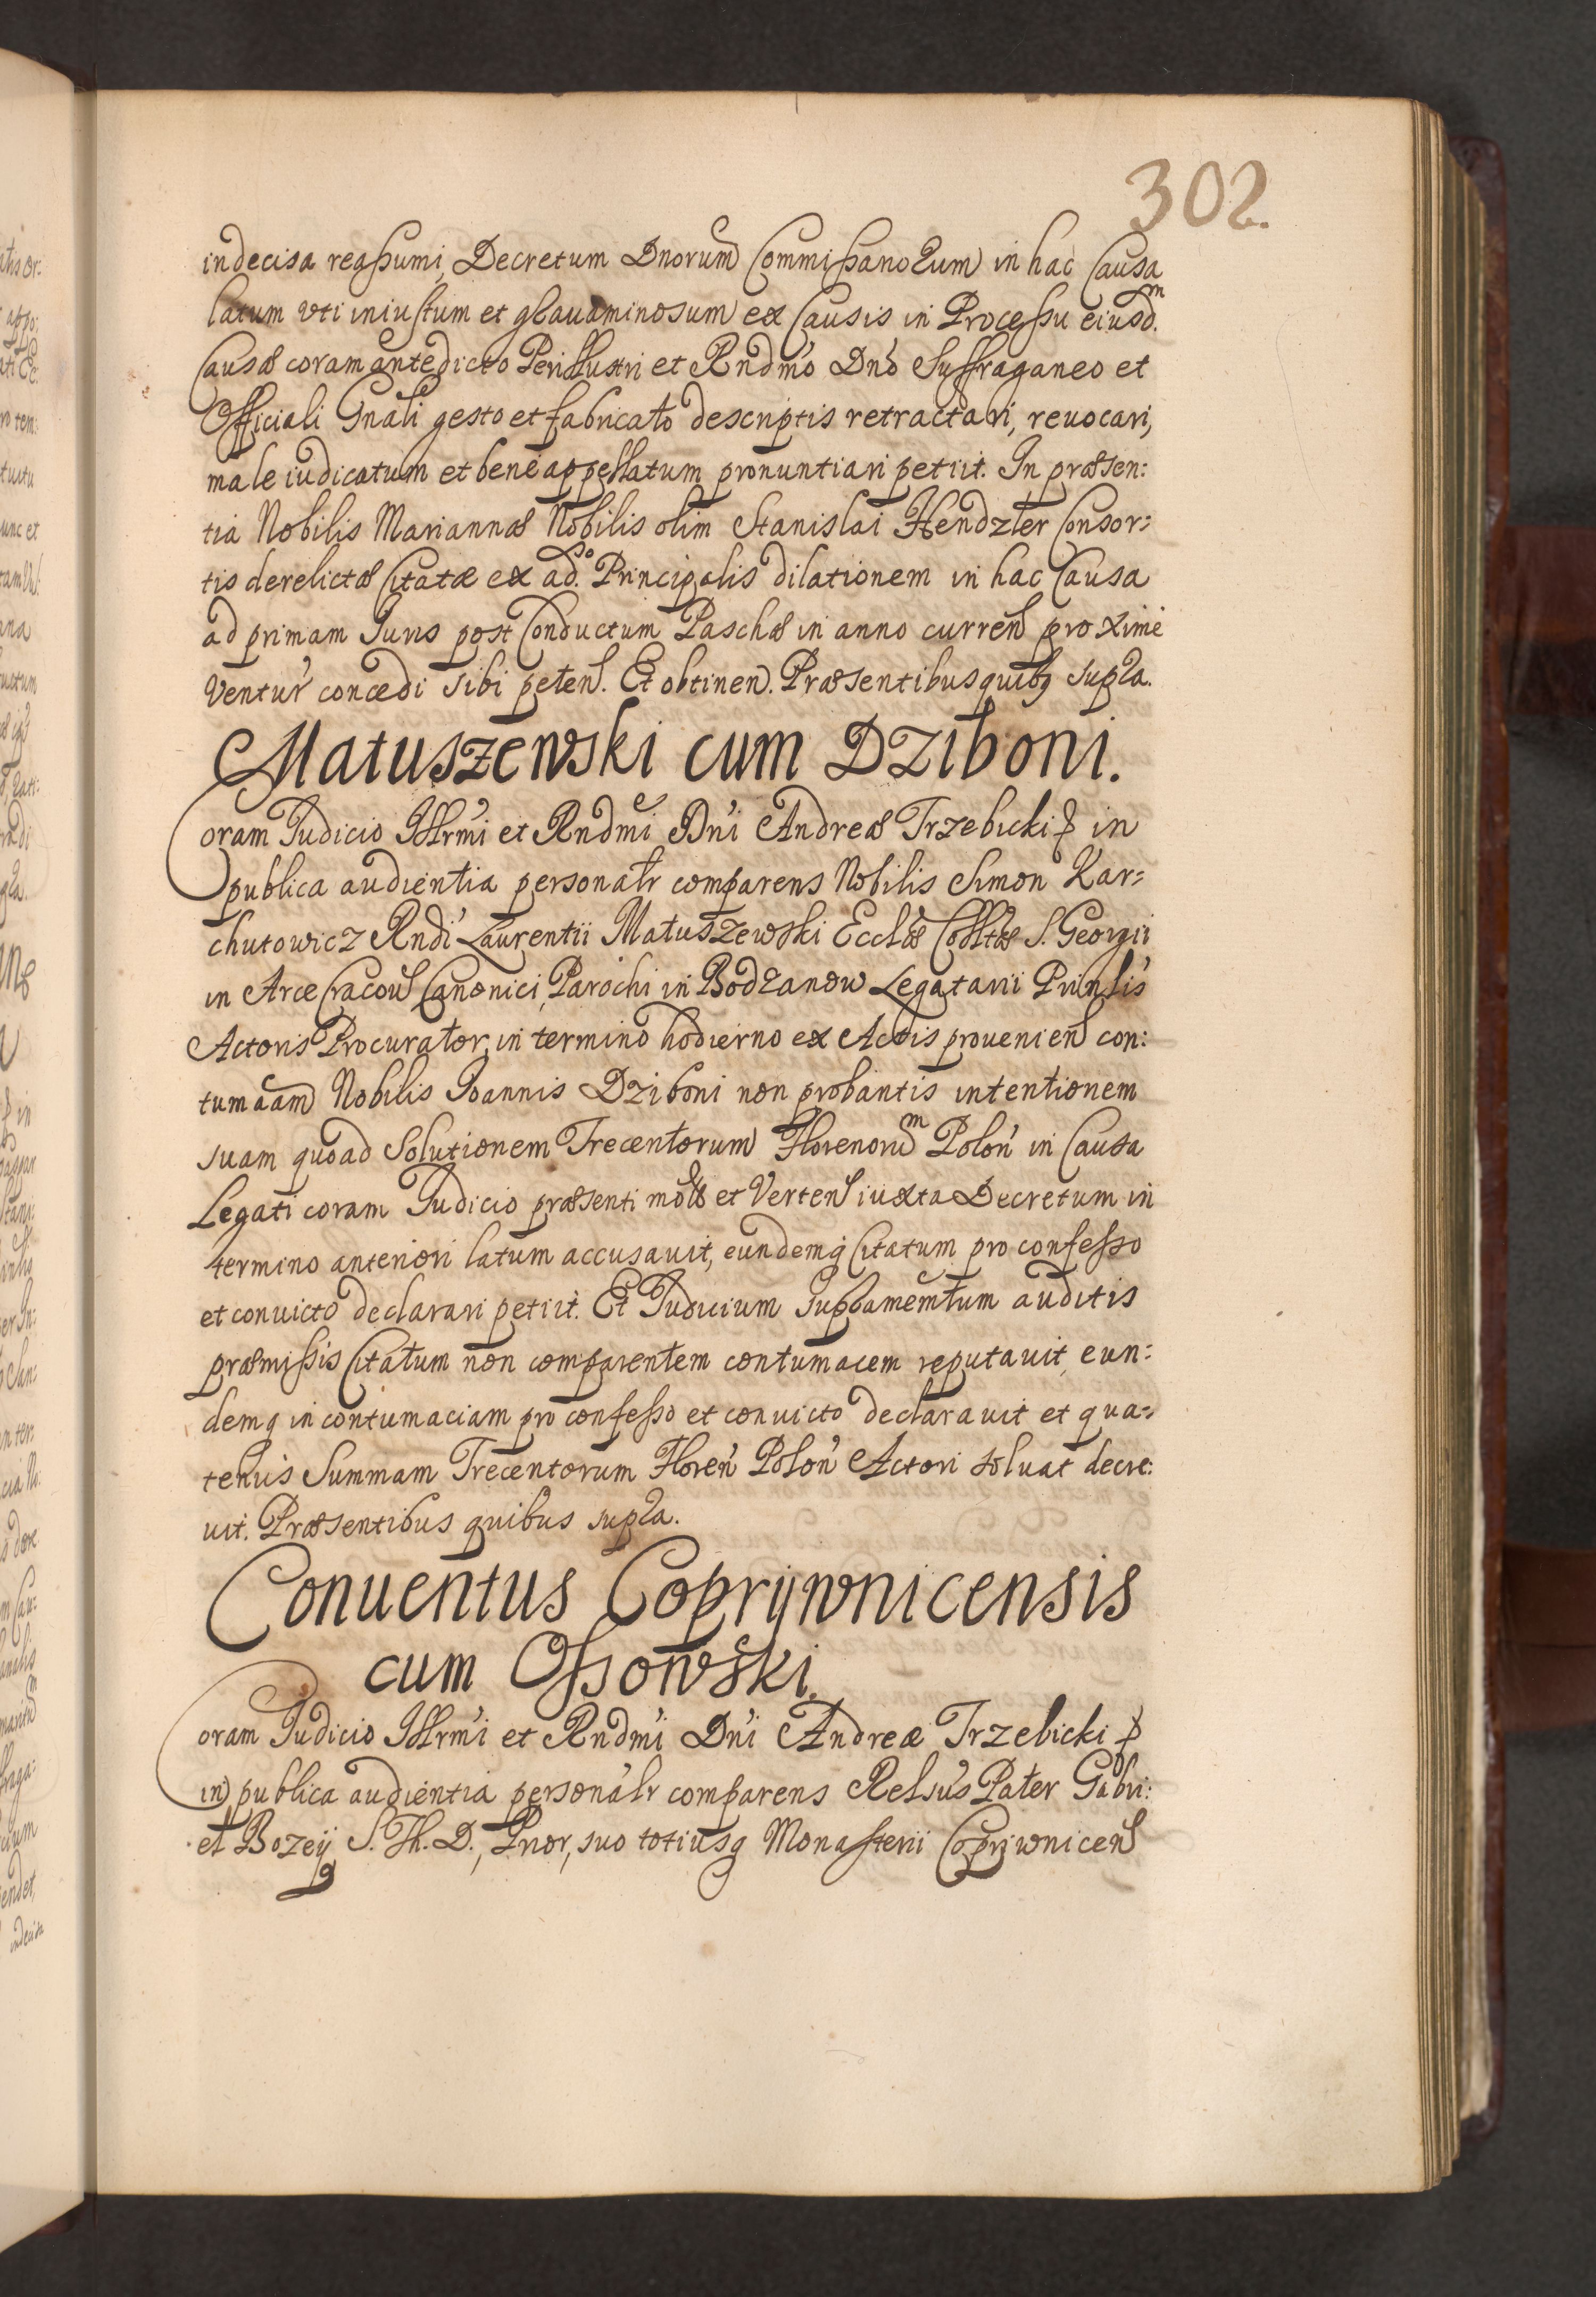 302.
indecisa reassumi, Decretum Dnorum Commissariorum in hac Causa
latum vti iniustum et grauaminosum ex Causis in Processu eiusd.m
Causæ coram antedicto Perillustri et Rndmo Dno Suffraganeo et
Officiali Gnali gesto et fabricato descriptis retractari, reuocari,
male iudicatum et bene appellatum pronuntiari petiit. In præsen:
tia Nobilis Mariannæ Nobilis olim Stanislai Hendzler Consor:
tis derelictæ Citatæ ex ad.so Principalis dilationem in hac Causa
ad primam Juris post Conductum Paschæ in anno curren proxime
Ventur concedi sibi peten. Et obtinen. Præsentibus quibq supra.
Matuszewski cum Dziboni.
Coram Judicio Illrmi et Rndmi Dni Andreæ Trzebicki p in
publica audientia personalr comparens Nobilis Simon Kar:
chutowicz Rndi Laurentii Matuszewski Ecclæ Colltæ S. Georgii
in Arce Cracou Canonici, Parochi in Bodzanow Legatarii Prinlis
Actoris Procurator, in termino hodierno ex Actis prouenien con:
tumaciam Nobilis Joannis Dziboni non probantis intentionem
suam quoad Solutionem Trecentorum Florenorum Polon in Causa
Legati coram Judicio præsenti motæ et Verten iuxta Decretum in
termino anteriori latum accusauit, eundemq Citatum pro confesso
et conuicto declarari petiit. Et Judicium Supramemtum auditis
præmissis Citatum non comparentem contumacem reputauit, eun:
demq in contumaciam pro confesso et conuicto declarauit et qua:
tenus Summam Trecentorum Floren Polon Actori soluat decre:
uit. Præsentibus quibus supra.
Conuentus Coprijwnicensis
cum Ossowski.
Coram Judicio Illrmi et Rndmi Dni Andreæ Trzebicki p
in publica audientia personalr comparens Relsus Pater Gabri:
el Bozeij S. Th. D., Prior, suo totiusq Monasterii Coprijwnicen